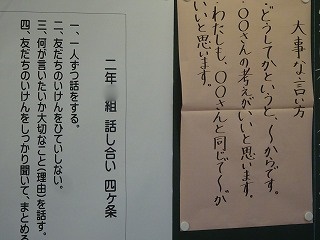 大事な言い方
・どうしてかというと、〜からです。
・〇〇さんの考えがいいと思います。
・わたしも、〇〇さんと同じで〜が
いいと思います。
二年 組 話し合い 四ケ条
一、一人ずつ話をする。
二、友だちのいけんをひていしない。
三、何が言いたいか大切なこと（理由）を話す。
四、友だちのいけんをしっかり聞いて、まとめる